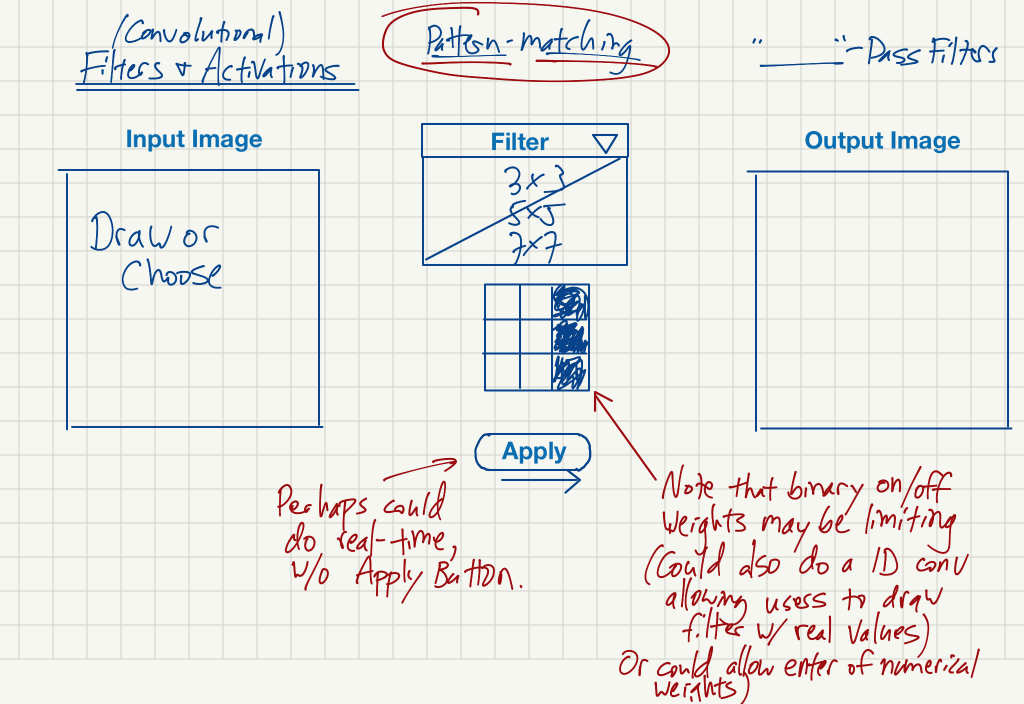 (Convolutional)
Filters & Activations
Pattern-matching
"______"-Pass Filters
Input Image
Filter
Output Image
3x3
5x5
7x7
Draw or
Choose
Apply
Perhaps could
do real-time,
w/o Apply Button.
Note that binary on/off
weights may be limiting
(Could also do a 1D conv
allowing users to draw
filter w/ real values)
Or could allow enter of numerical
weights)